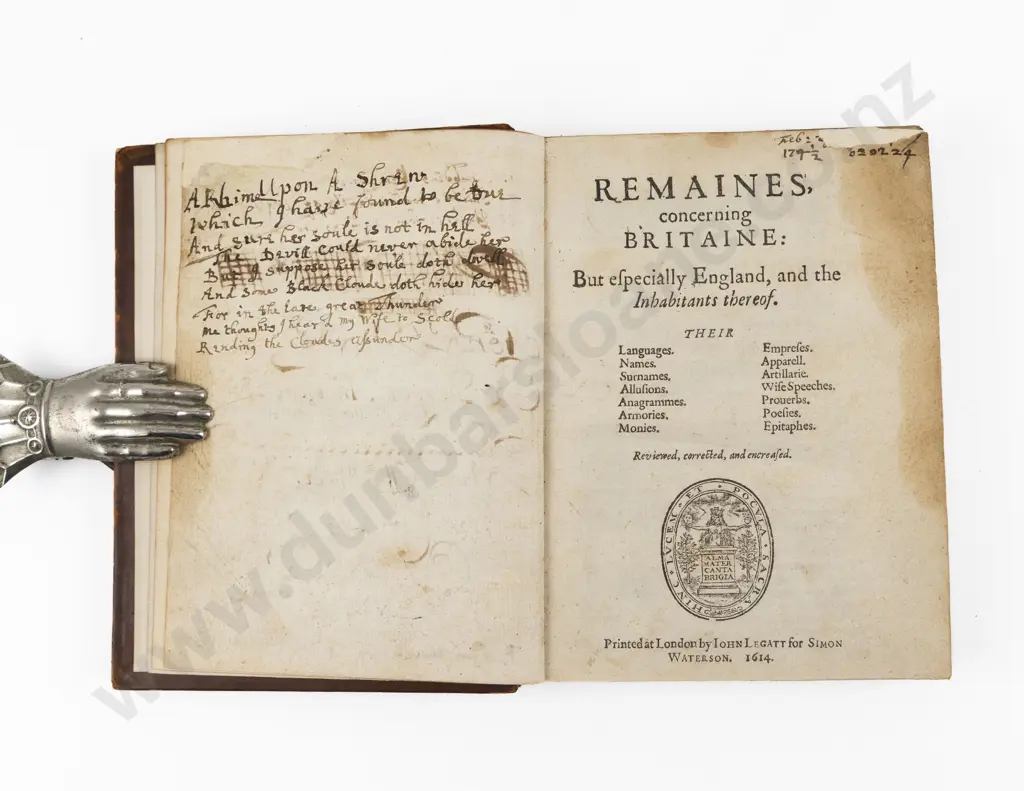 A Rhime Upon A Shrew
Which I have found to be true
And sure her soule is not in hell
The Devill Could never abide her
But I suppose her soule doth dwell
And Some Black Cloude doth hide her
For in the late great Thunder
Me thoughts I heard my Wife to Scold
Rending the Cloudes assunder
Feb:
179½
02 02' 24
REMAINES,
concerning
BRITAINE:
But eſpecially England, and the
Inhabitants thereof.
THEIR
Languages.
Names.
Surnames.
Alluſions.
Anagrammes.
Armories.
Monies.
Empreſes.
Apparell.
Artillarie.
Wiſe Speeches.
Prouerbs.
Poeſies.
Epitaphes.
Reviewed, corrected, and encreaſed.
HINC LVCEM ET POCVLA SACRA
ALMA
MATER
CANTA
BRIGIA
Printed at London by IOHN LEGATT for SIMON
WATERSON. 1614.
www.dunbarsloane.co.nz